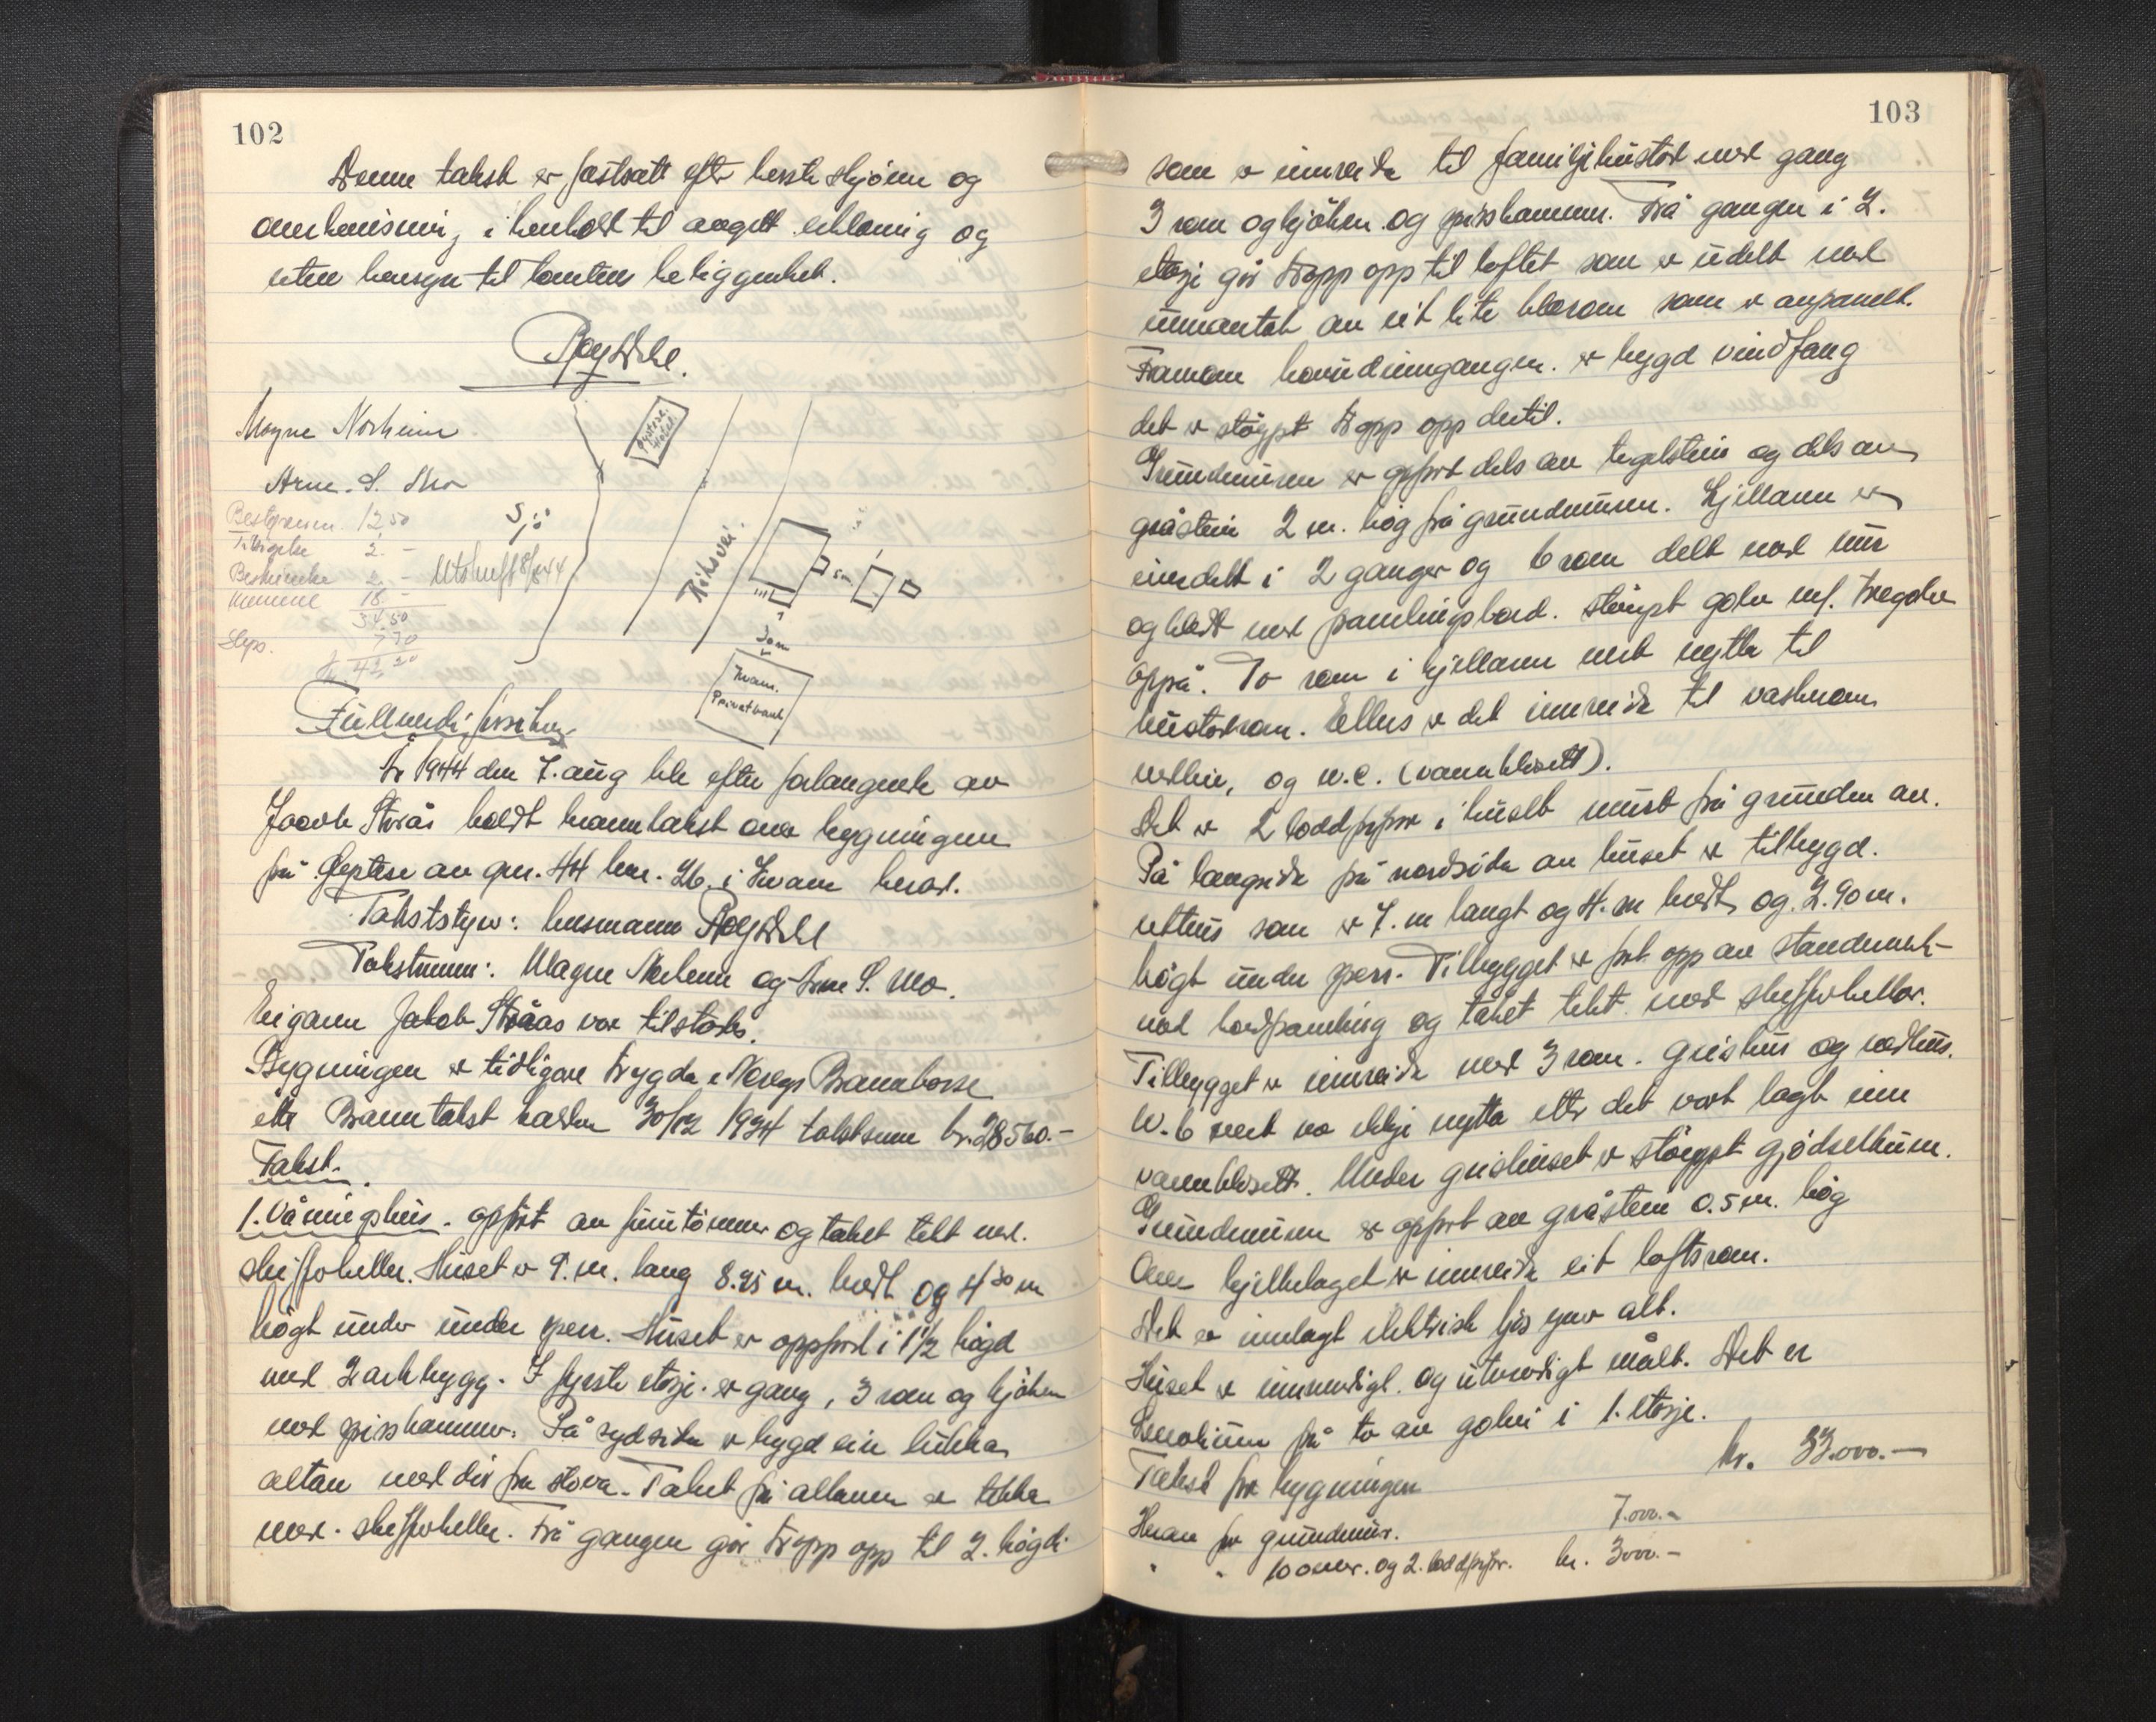 102
Denne takst er fastsatt efter beste skjønn og
overbevisning i henhold til avgitt erklæring og
uten hensyn til tomtens beliggenhet.
Røydehl.
Magne Norheim
Arne. S. Mo
Øystese Hotel
Sjö
Riksvei
5m
30m
Kvam. Privatbank
Bestyreren. 12 50
Tilsigelse 2. -
Beskrivelse 2. -
Utskrift 8/8 44
18 -
34.50
Skyss. 7 70
kr. 42 20
År 1944 den 7. aug ble efter forlangende av
Jacob Strås holdt branntakst over bygningene
på Øystese av gnr. 44 bnr. 26. i Kvam herad.
Takststyrer: lensmann Røydehl
Takstmenn: Magne Norheim og Arne S. Mo.
Eigaren Jakob Stråas var tilstades.
Bygningen er tidligare trygda i Noregs Brannkasse
etter Branntakst halden 30/12 1934 takstsum kr. 28560.-
Takst.
1. Våningshus. oppført av furutømmer og taket tekt med.
skifferheller. Huset er 9. m. lang 8.95 m. bredt og 4 30 m
högt under under sperr. Huset er oppförd i 1 1/2 högd
med 2 arkbygg. I fyrste etasje. er gang, 3 rom og kjöken
med spisskammer. På sydsida er bygd ein lukka
altan med dör fra stova. Taket på altanen er tekka
med. skifferheller. Frå gangen går tropp opp til 2. högdi
103
som er innreida til familjehusstod med gang
3 rom og kjöken og spisskammer. Frå gangen i 2.
etasje går tropp opp til loftet som er udelt med
unnantak av eit lite klerom som er avpanelt.
Framom hovudinngangen. er bygd vindfang
det er stöypt tropp opp dertil.
Grundmuren er oppført dels av teglstein og dels av
gråstein 2 m. hög frå grundmuren. Kjellaren er
inndelt i 2 ganger og 6 rom delt med mur
og kledt med panelingsbord. stöypt golv m/. tregolv
oppå. To rom i kjellaren vert nytta til
husstodrom. Ellers er det innreida til vaskerom
vedbu, og w.c. (vannklosett).
Det er 2 loddpipor i huset murt frå grunden av.
På langsida på nordsida av huset er tilbygd.
uthus som er 7. m langt og 4. m bredt og. 2.90 m.
högt under sperr. Tilbygget er ført opp av standerverk
med bordpaneling og taket tekt. med skifferhellor.
Tilbygget er innreida med 3 rom. grishus og vedhus.
W.C vert no ikkje nytta etter det vart lagt inn
vannklosett. Under grishuset er stöypt gjödselkum.
Grundmuren er oppført av gråstein 0.5 m. hög
Over bjelkelaget er innreida eit loftsrom.
Det er innlagt elektrisk ljos yver alt.
Huset er innvendigt. og utvendigt målt. Det er
linoleum på to av golvi i 1. etasje.
Takst for bygningen kr. 33.000.-
Herav for grundmur. 7.000.-
" " 10 omr. og 2. loddpipor. kr. 3000.-